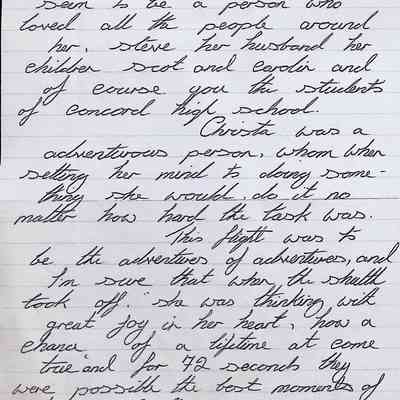 seen to be a person who
loved all the people around
her, steve her husband her
children scot and carolin and
of course you the students
of concord high school.
Christa was a
adventurous person, whom when
setting her mind to doing some-
thing she would, do it no
matter how hard the task was.
This flight was to
be the adventures of adventures, and
I'm sure that when, the shuttle
took off, she was thinking with
great joy in her heart, how a
chance of a lifetime at come
true and for 72 seconds they
were, possith the best moments of